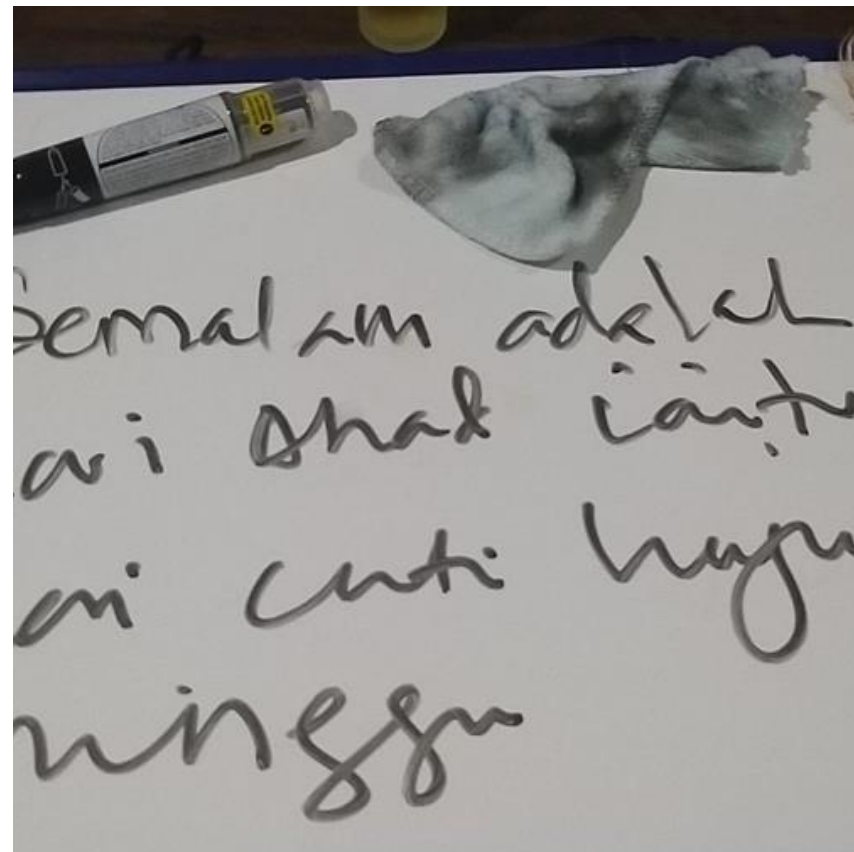 Semalam adalah
ari Ahad iaitu
ari cuti huju
minggu